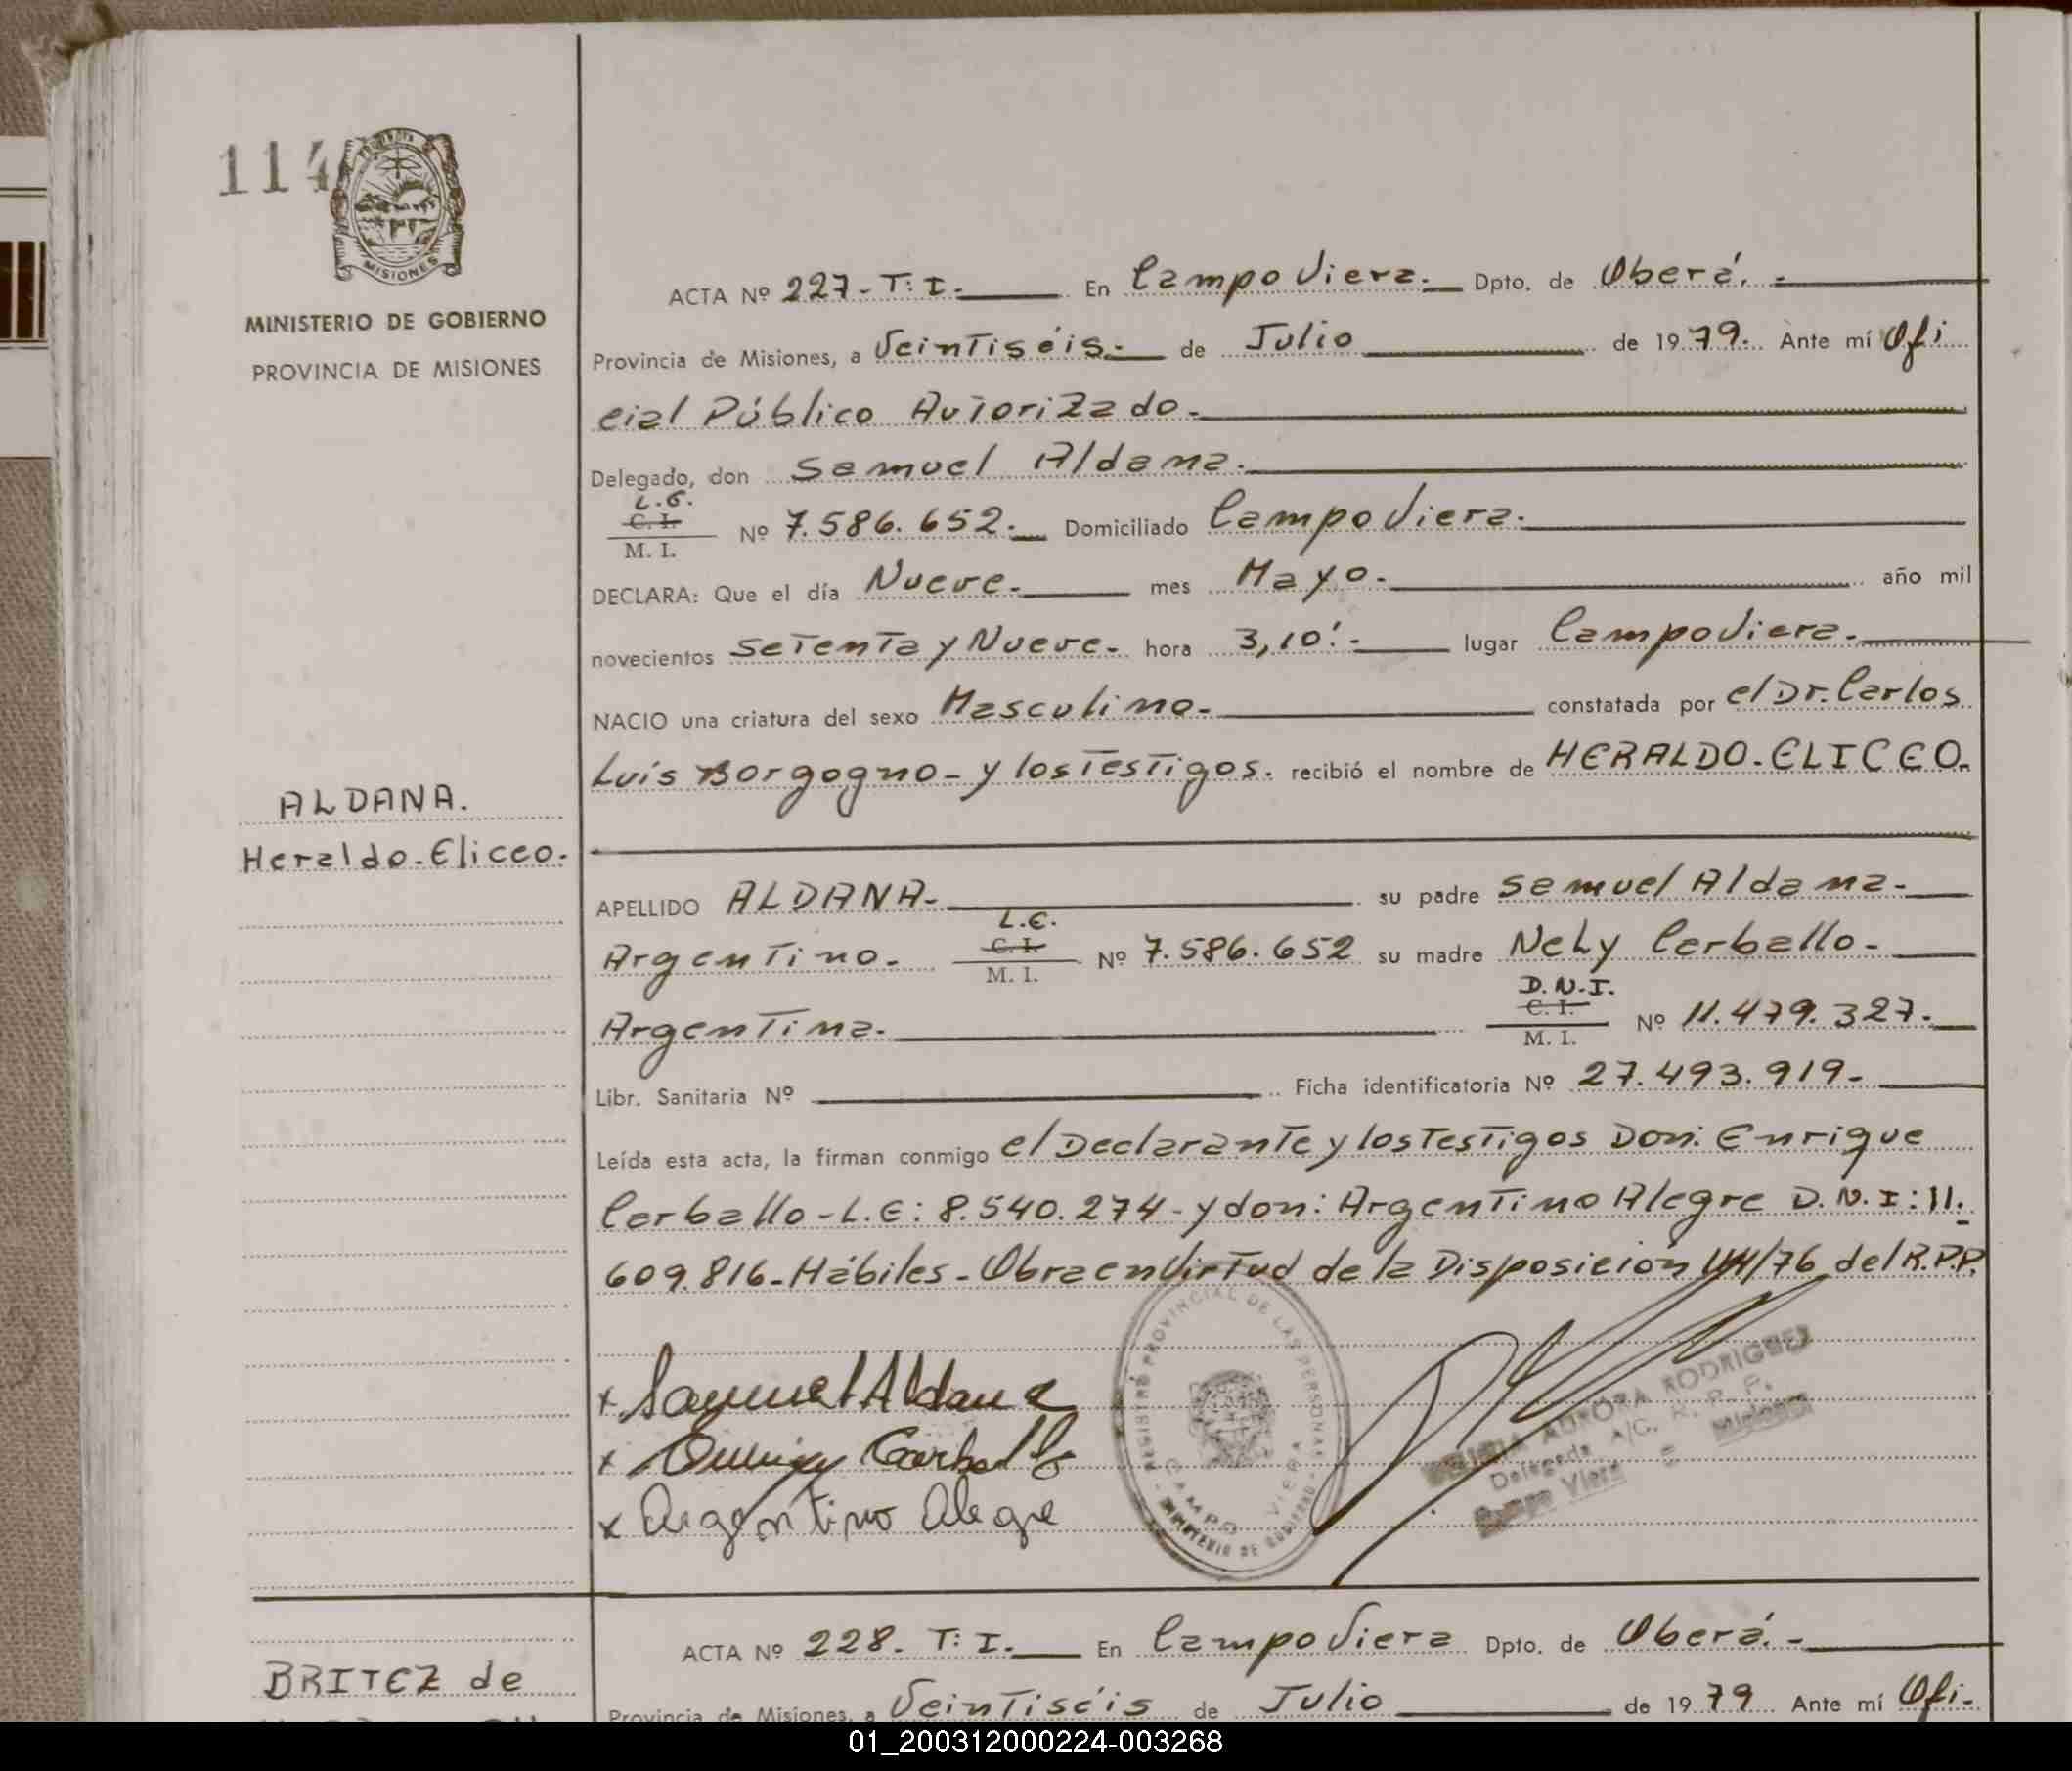 114
MISIONES
MINISTERIO DE GOBIERNO
PROVINCIA DE MISIONES
ACTA Nº 227-T:I. En Campo Viera. Dpto. de Oberá.-
Provincia de Misiones, a Veintiséis.- de Julio de 1979. Ante mí Ofi
cial Público Autorizado.
Delegado, don Samuel Aldana.
L.E.
C. I.
M. I.
Nº 7.586.652. Domiciliado Campo Viera.
DECLARA: Que el día Nueve. mes Mayo. año mil
novecientos Setenta y Nueve. hora 3,10'.- lugar Campo Viera.
NACIO una criatura del sexo Masculino. constatada por el Dr. Carlos
Luis Borgogno - y los Testigos. recibió el nombre de HERALDO. ELICEO.
ALDANA.
Heraldo. Eliceo.
APELLIDO ALDANA. su padre Samuel Aldana.
L.E.
Argentino. C. I. Nº 7.586.652 su madre Nely Carballo.
M. I.
D.N.I.
Argentina. C. I. Nº 11.479.327.
M. I.
Libr. Sanitaria Nº Ficha identificatoria Nº 27.493.919-
Leída esta acta, la firman conmigo el Declarante y los Testigos Don: Enrique
Carballo - L.E: 8.540.274 - y don: Argentino Alegre D.N.I: 11.
609.816 - Hábiles - Obra en Virtud de la Disposición /76 del R.P.P.
x Samuel Aldana
x Carballo
x Argentino Alegre
REGISTRO PROVINCIAL DE LAS PERSONAS
CAMPO VIERA
MINISTERIO DE GOBIERNO
AURORA RODRIGUEZ
Delegada A/C. R. P. P.
Campo Viera Misiones
ACTA Nº 228. T:I. En Campo Viera Dpto. de Oberá.-
BRITEZ de
Provincia de Misiones, a Veintiséis de Julio de 1979 Ante mí Ofi-
01_200312000224-003268